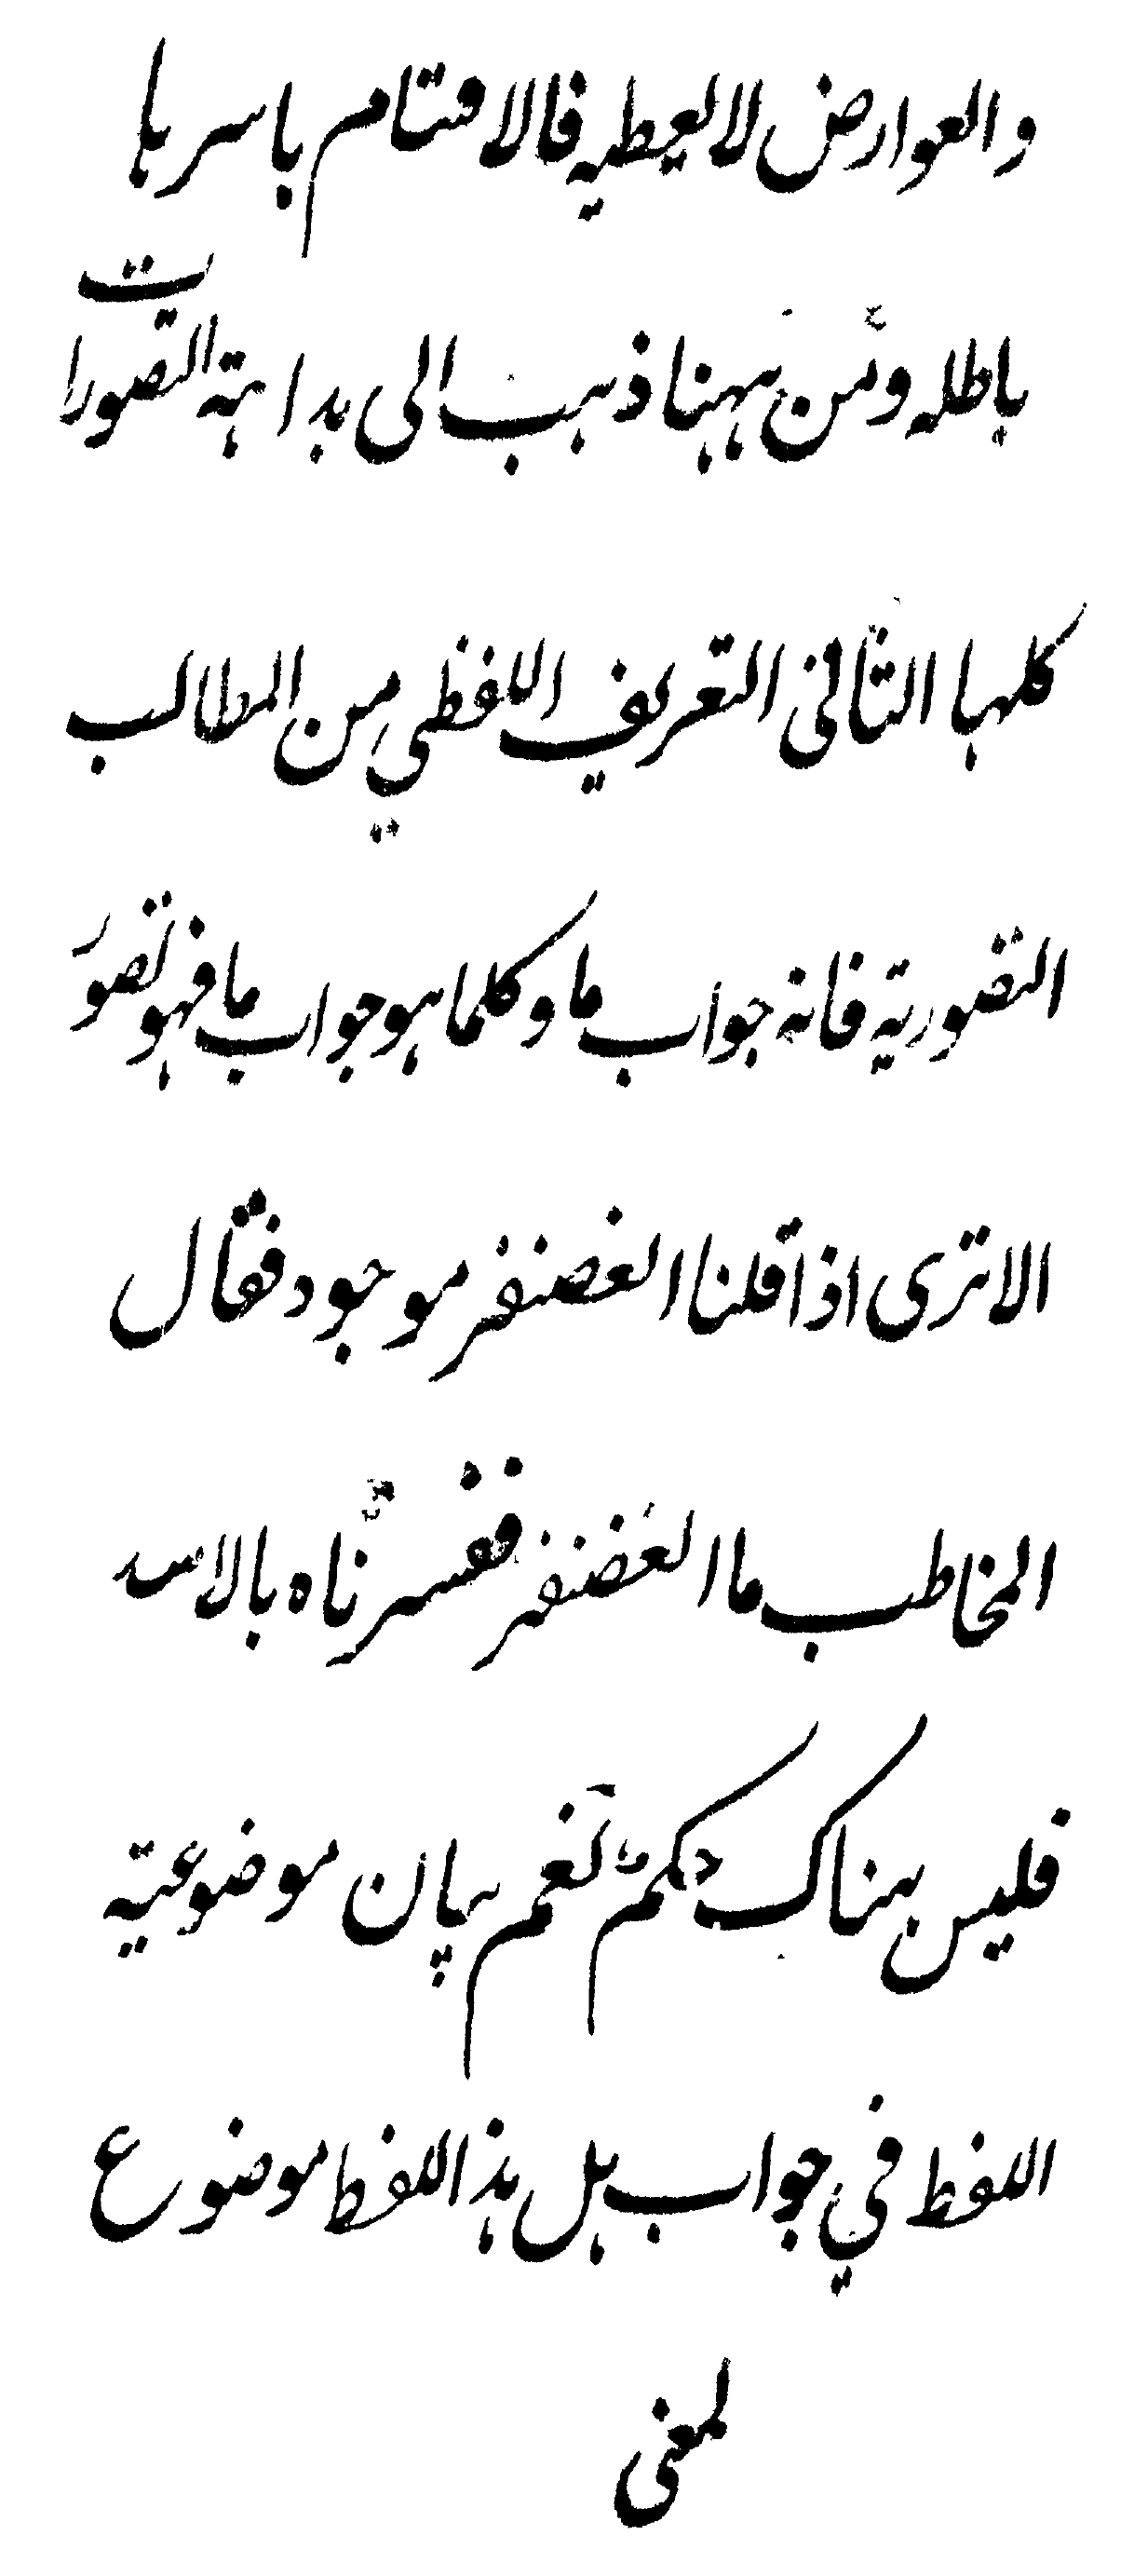 والعوارض لا لعطيه فالاقتام باسرها
باطله ومن ههنا ذهب الى بداهة التصورات
كلها الثانى التعريف اللفظي من المطالب
التصورية فانه جواب ما وكلما هو جواب ما فهو تصور
الاترى اذا قلنا الغضنفر موجود فقال
المخاطب ما الغضنفر ففسرناه بالاسد
فليس هناك حكم نعم بيان موضوعية
اللفظ في جواب هل هذ اللفظ موضوع
لمعنى